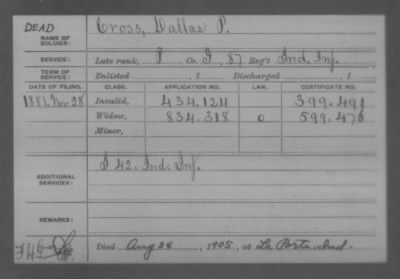 DEAD
NAME OF SOLDIER: Cross, Dallas P.
SERVICE: Late rank, P Co. I, 87 Reg't Ind. Inf.
TERM OF SERVICE: Enlisted , 1 Discharged , 1
DATE OF FILING. CLASS. APPLICATION NO. LAW. CERTIFICATE NO.
1881, Nov. 28 Invalid, 434.124 399.491
Widow, 834.318 o 599.476
Minor,
ADDITIONAL SERVICES: I 42. Ind. Inf.
REMARKS:
Died Aug 24, 1905, at La Porte, Ind.